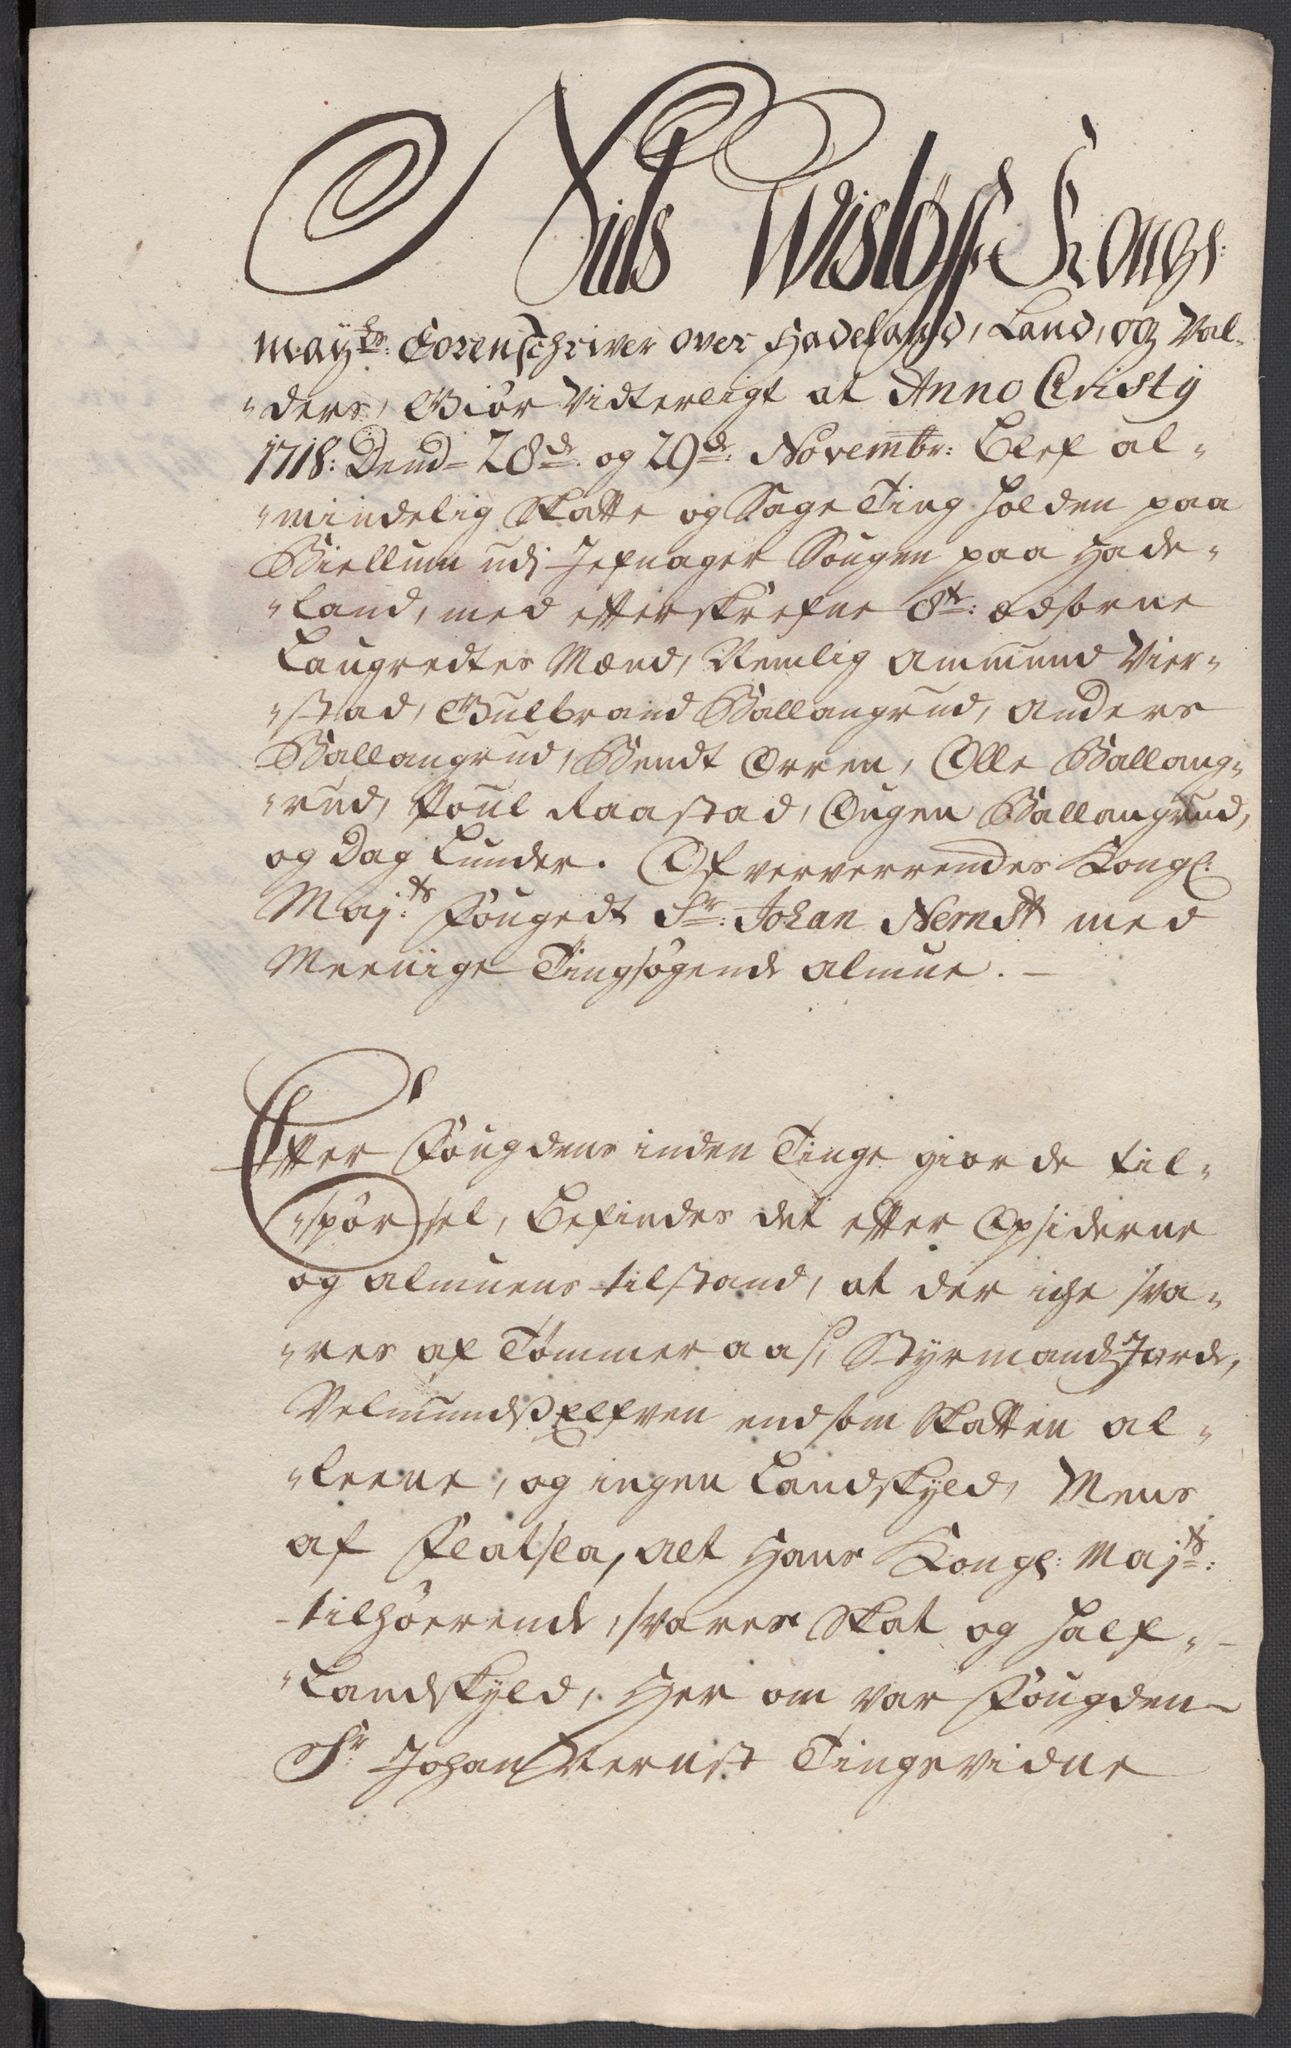 Niels Wisløff Kongl:
may:ts Sorenschriver over Hadeland, Land, og Val-
"ders, Giør Vidterligt at Anno Cristy
1718: Dend 28de og 29de: Novembr: Blef al-
"mindelig Skatte og Sage Ting holden paa
Biellum udj Jefnager Sougen paa Hade-
"land, med efterskrefne 8te:ædsorne
Laugredtes Mænd, Nemlig Ammund Vier-
"stad, Gulbrand Ballangrud, Anders
Ballangrud, Bendt Orren, Olle Ballang-
"rud, Poul Raastad, Ougen Ballangrud,
og Dag Lunder. Ofververrendes Kongl:
Maj:ts Fougedt Sr: Johan Nernst med
Meenige Tingsøgende almue.
Efter Fougdens inden Tinge giorde til-
"spørsel, befindes det efter Opsiderne
og almuens tilstand, at der iche sva-
"res af Tømmeraas, Styrmands Jorde,
Velmunds Elfven endsom Skatten al-
"leene, og ingen Landskyld, Mens
af Flatsla, alt Hans Kongl: Maj:ts:
tilhøerende, svares Skat og half-
"Landskyld, Her om var Fougden
Sr: Johan Nernst Tingsvidne